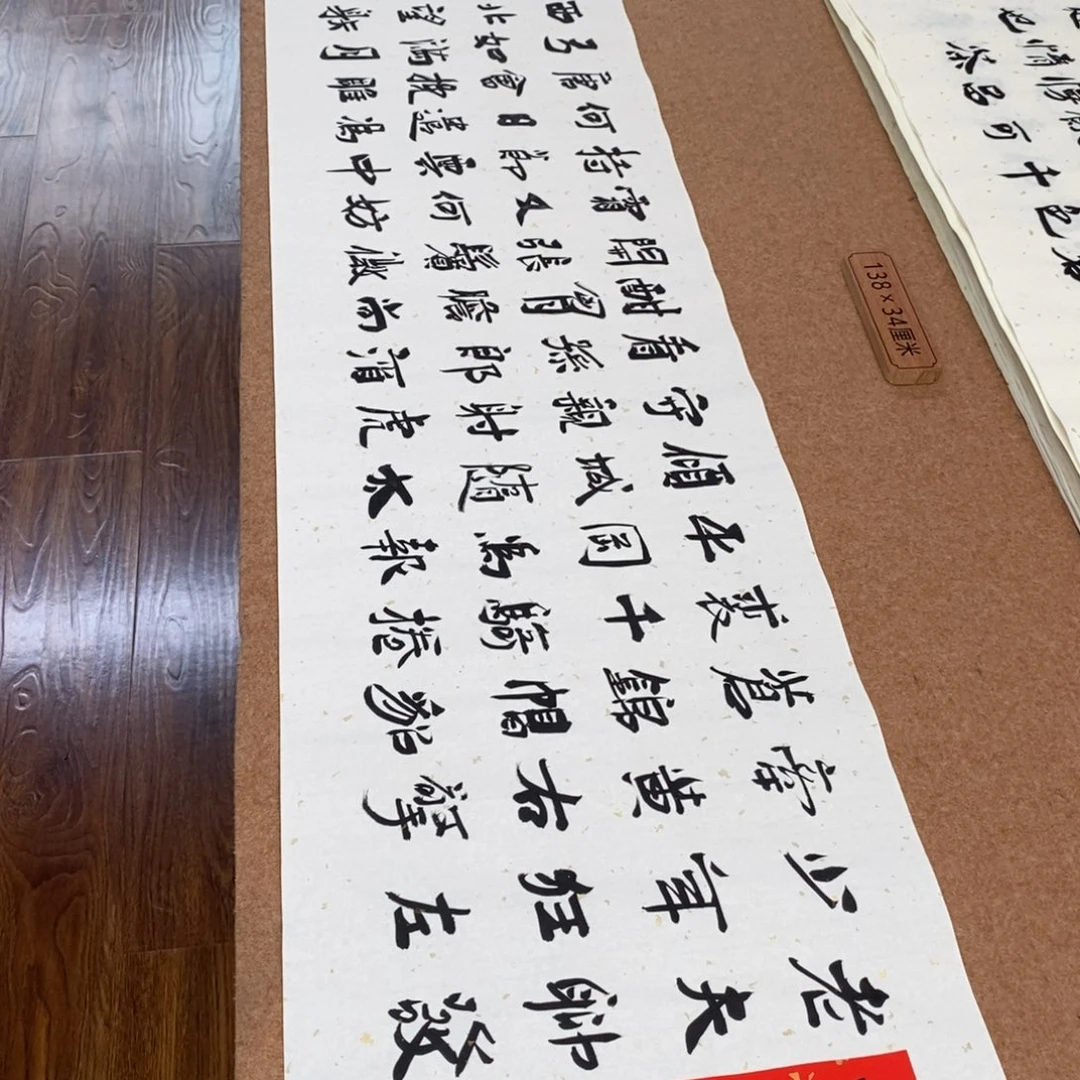 老夫聊發
少年狂左
牽黃右擎
蒼錦帽貂
裘千騎捲
平岡為報
傾城隨太
守親射虎
看孫郎酒
酣胸膽尚
開張鬢微
霜又何妨
持節雲中
何日遣馮
唐會挽雕
弓如滿月
西北望射
138×34厘米